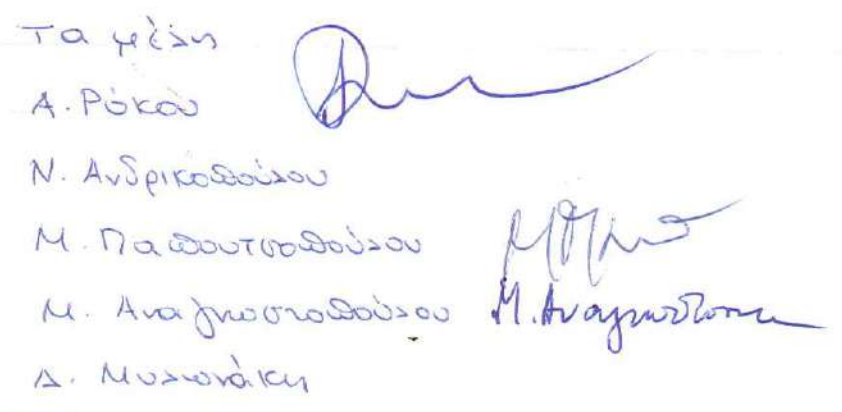 Τα μέλη
Α. Ρόκου
Ν. Ανδρικοπούλου
Μ. Παπουτσοπούλου
Μ. Αναγνωστοπούλου Μ. Αναγνωστοπου
Δ. Μυλωνάκη